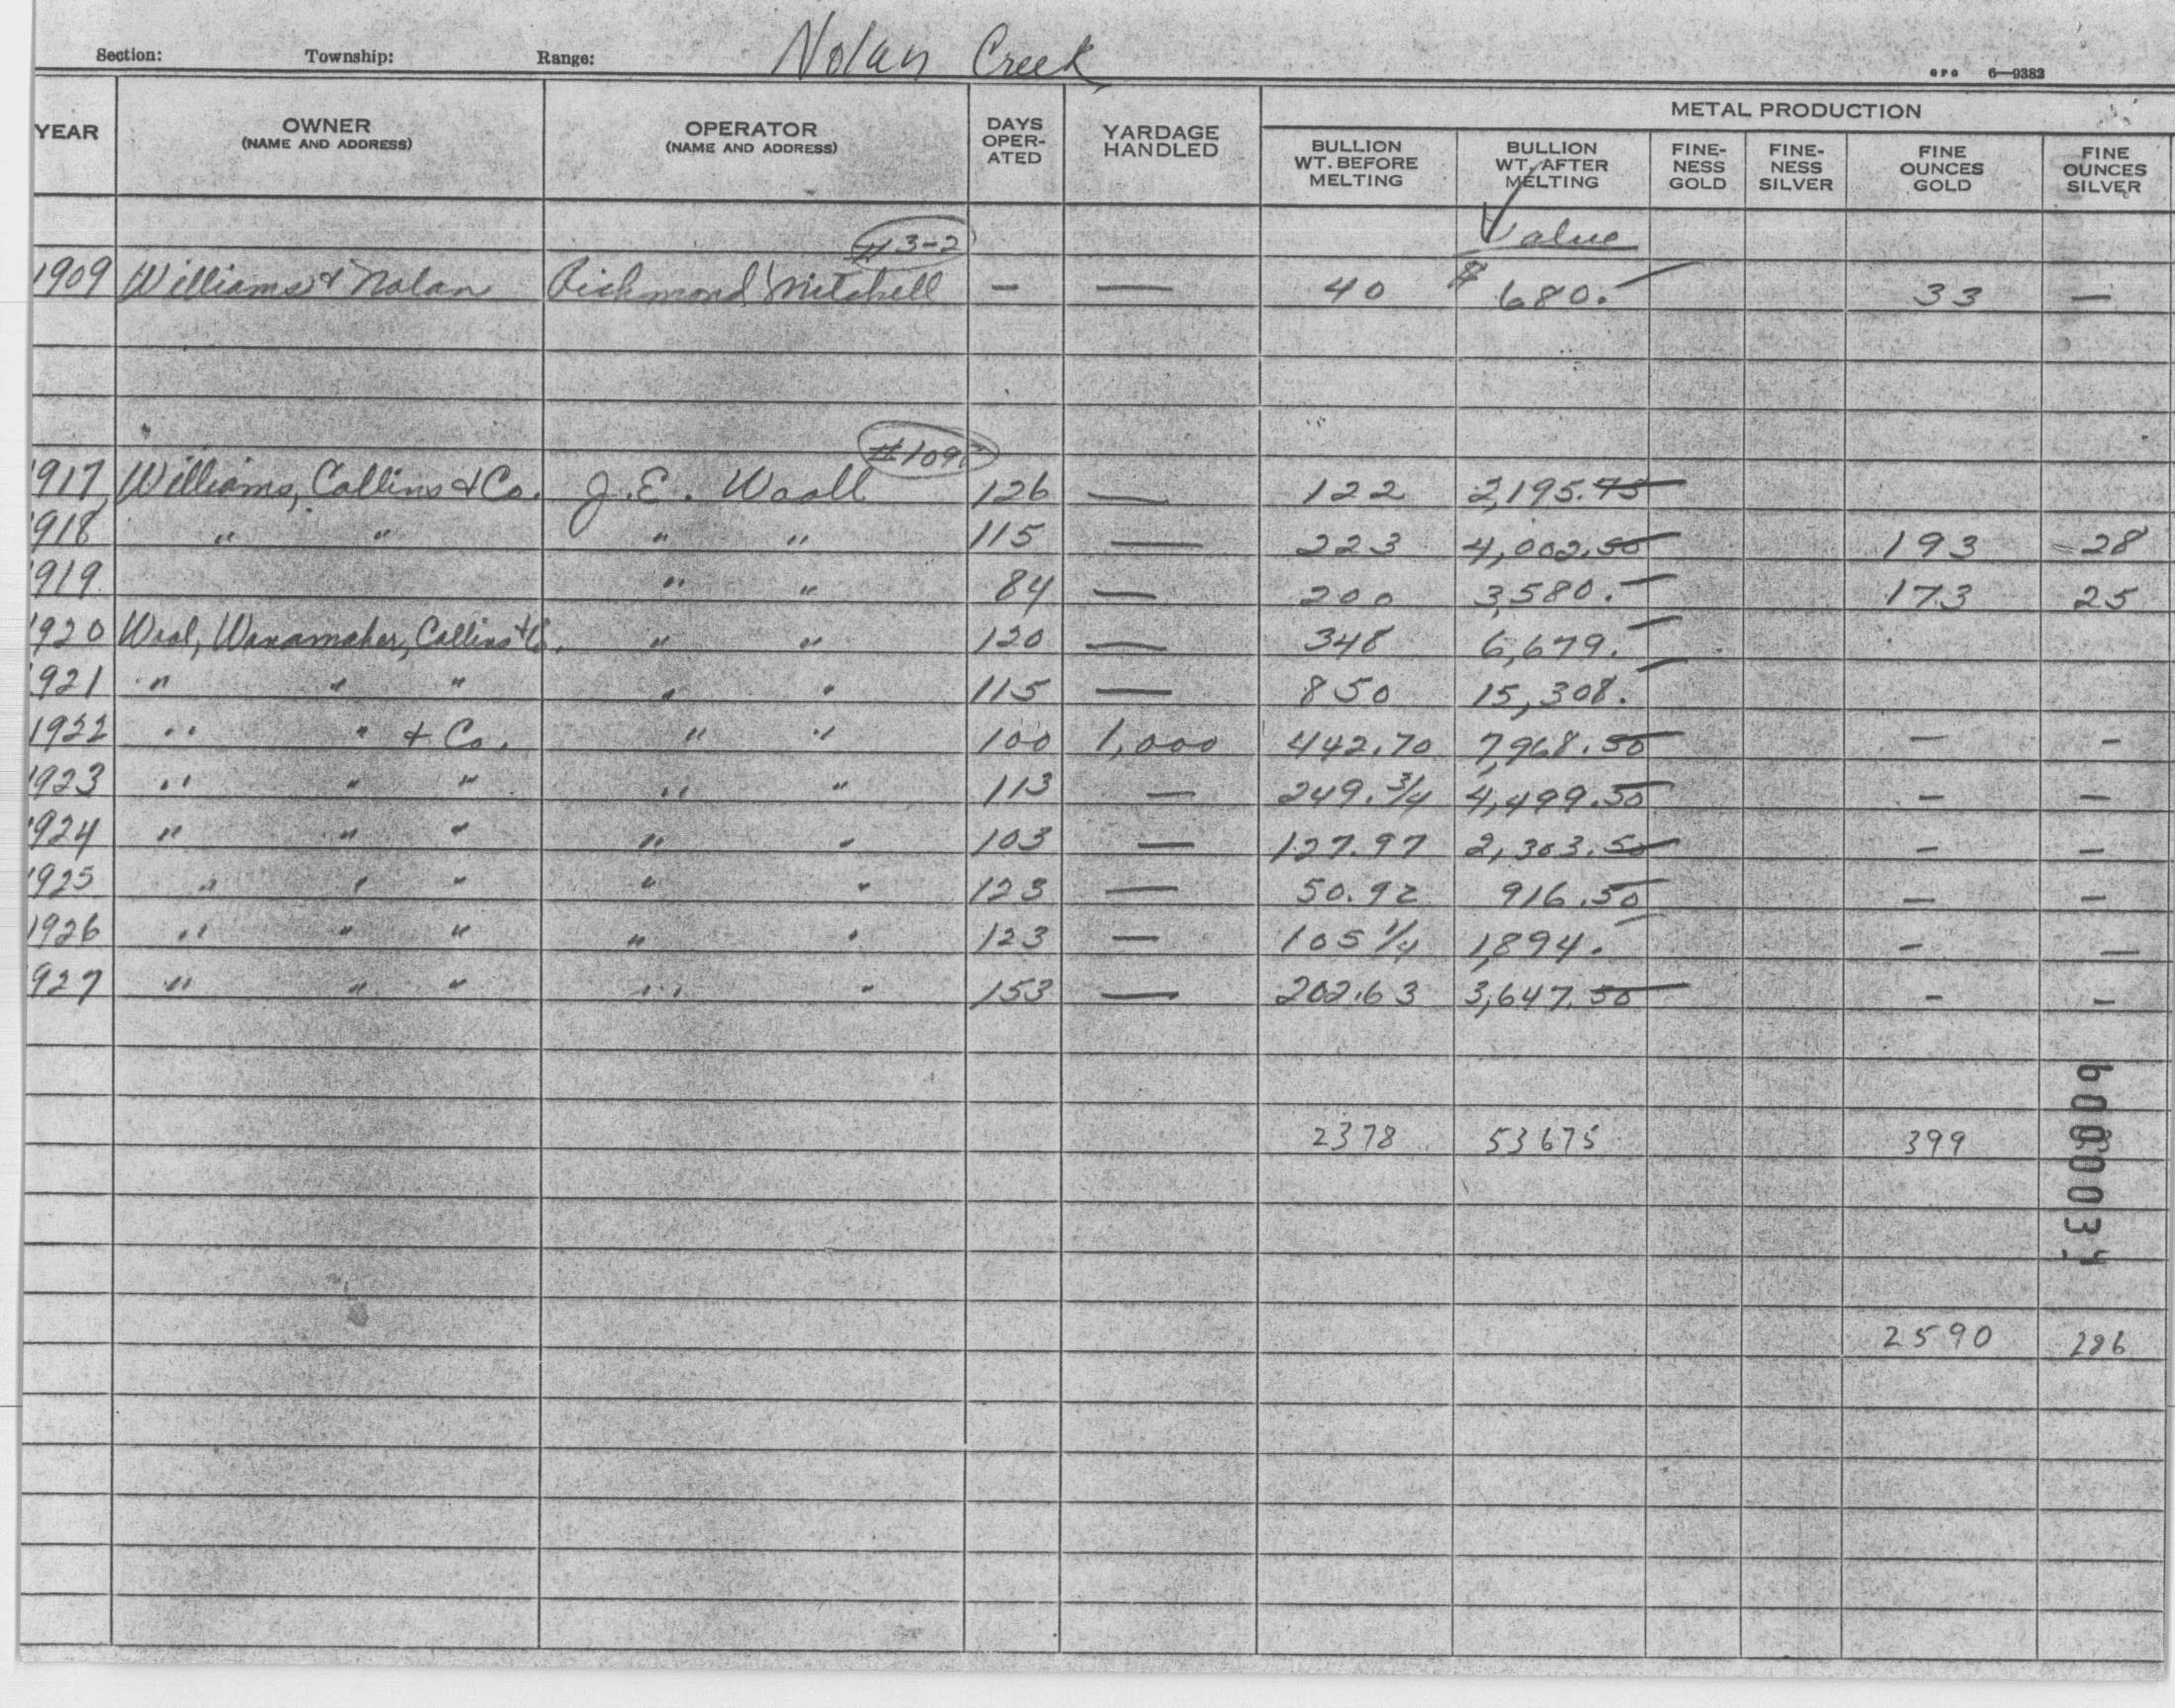 Nolan Creek
Section: Township: Range:
GPO 6—9382
METAL PRODUCTION
YEAR OWNER (NAME AND ADDRESS) OPERATOR (NAME AND ADDRESS) DAYS OPER-ATED YARDAGE HANDLED BULLION WT. BEFORE MELTING BULLION WT. AFTER MELTING FINE-NESS GOLD FINE-NESS SILVER FINE OUNCES GOLD FINE OUNCES SILVER
Value
#3-2
1909 Williams & Nolan Richmond Mitchell — — 40 $ 680.— 33 —
#109
1917 Williams, Collins & Co. J.E. Wooll 126 — 122 2,195.75
1918 " " " " 115 — 223 4,002.50 193 28
1919 " " 84 — 200 3,580.— 173 25
1920 Wool, Wanamaker, Collins & Co. " " 120 — 348 6,679.—
1921 " " " " " 115 — 850 15,308.—
1922 " " & Co. " " 100 1,000 442.70 7,968.50 — —
1923 " " " " " 113 — 249.3/4 4,499.50 — —
1924 " " " " " 103 — 127.97 2,303.50 — —
1925 " " " " " 123 — 50.92 916.50 — —
1926 " " " " " 123 — 105 1/4 1,894.— — —
1927 " " " " " 153 — 202.63 3,647.50 — —
2378 53675 399
2590 286